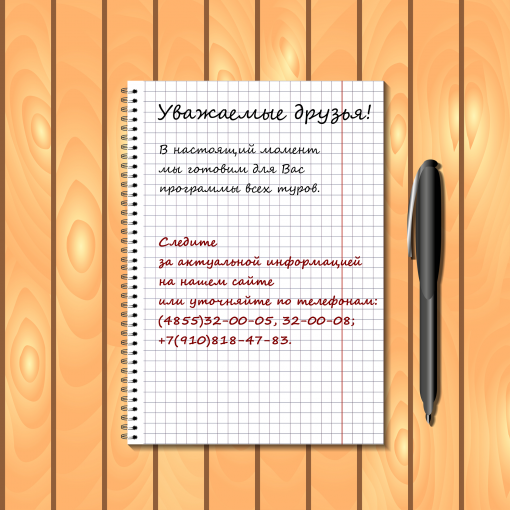 Уважаемые друзья!
В настоящий момент
мы готовим для Вас
программы всех туров.
Следите
за актуальной информацией
на нашем сайте
или уточняйте по телефонам:
(4855)32-00-05, 32-00-08;
+7(910)818-47-83.